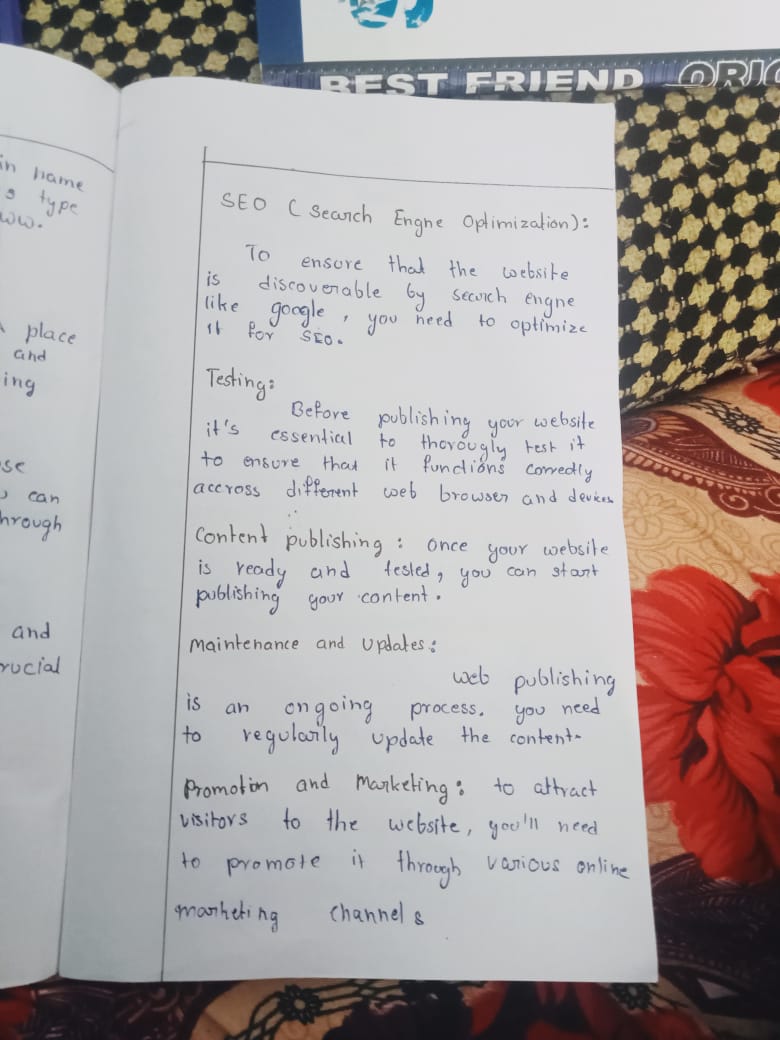 BEST FRIEND ORIG
in name
s type
ww.
place
and
ing
se
can
hrough
and
rucial
SEO ( Search Engne Optimization):
To ensure that the website
is discoverable by search engne
like google, you need to optimize
it for SEO.
Testing:
Before publishing your website
it's essential to thorougly test it
to ensure that it functions correctly
accross different web browser and devices
Content publishing : once your website
is ready and tested, you can start
publishing your content.
Maintenance and Updates:
web publishing
is an ongoing process. you need
to regularly update the content.
Promotion and Marketing: to attract
visitors to the website, you'll need
to promote it through various online
marketing channels